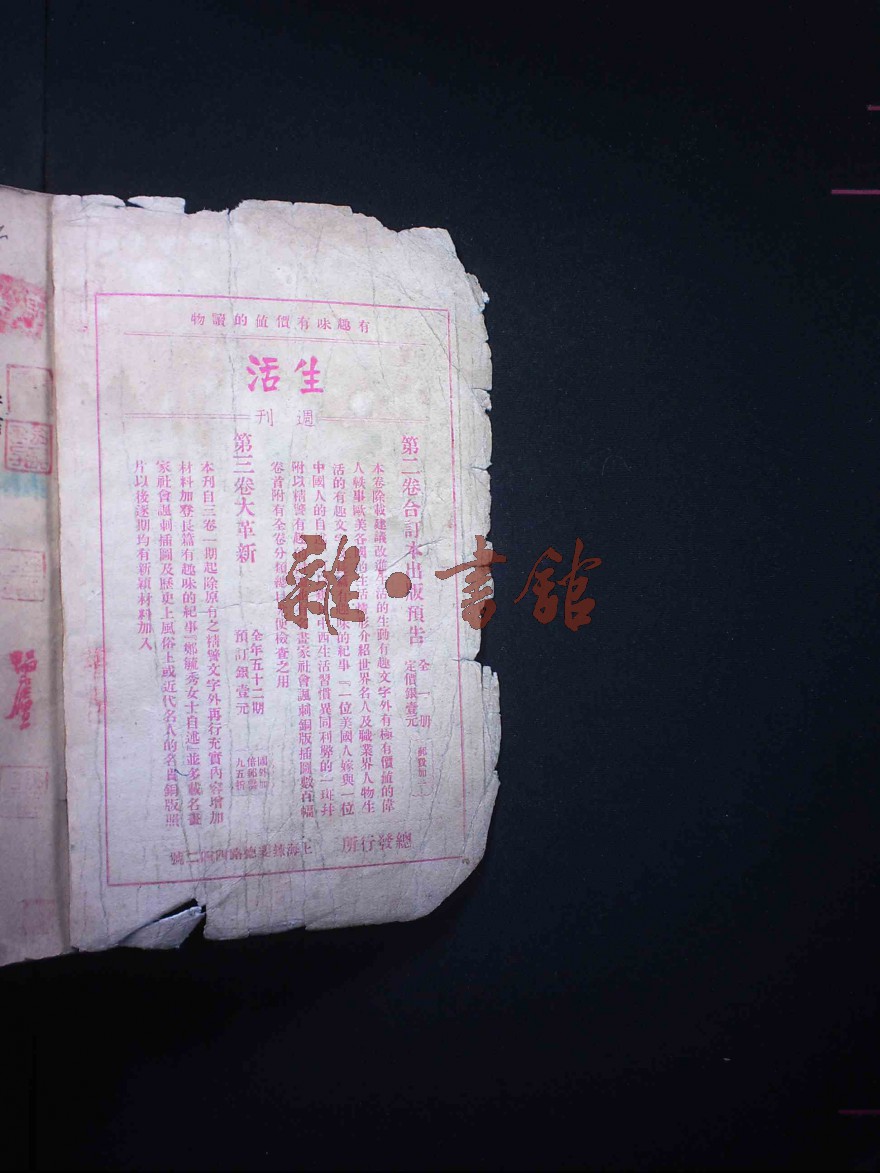 有趣味有價值的讀物
生活
週刊
第二卷合訂本出版預告
全一册
定價銀壹元
郵費加一
本卷除載建議改進生活的生動有趣文字外有極有價值的偉
人軼事歐美各國的生活情形介紹世界名人及職業界人物生
活的有趣文 味的紀事『一位美國人嫁與一位
中國人的自 西生活習慣異同利弊的一斑并
附以精警有趣 畫家社會諷刺銅版插圖數百幅
卷首附有全卷分類 便檢查之用
第三卷大革新
全年五十二期
預訂銀壹元
國外加
倍郵票
九五折
本刊自三卷一期起除原有之精警文字外再行充實內容增加
材料加登長篇有趣味的紀事『鄭毓秀女士自述』並多載名畫
家社會諷刺插圖及歷史上風俗上或近代名人的名貴銅版照
片以後逐期均有新穎材料加入
總發行所
上海 路四四二號
雜·書館